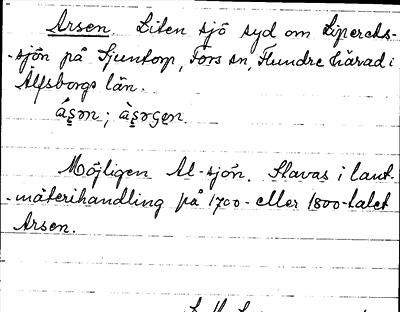 Arsen. Liten sjö syd om Lipereds-
-sjön på Sjuntorp, Fors sn, Flundre härad i
Älfsborgs län.
ás̨ǝn; às̨ǝgen.
Möjligen Al-sjön. Stavas i lant-
-mäterihandling på 1700- eller 1800-talet
Arsen.